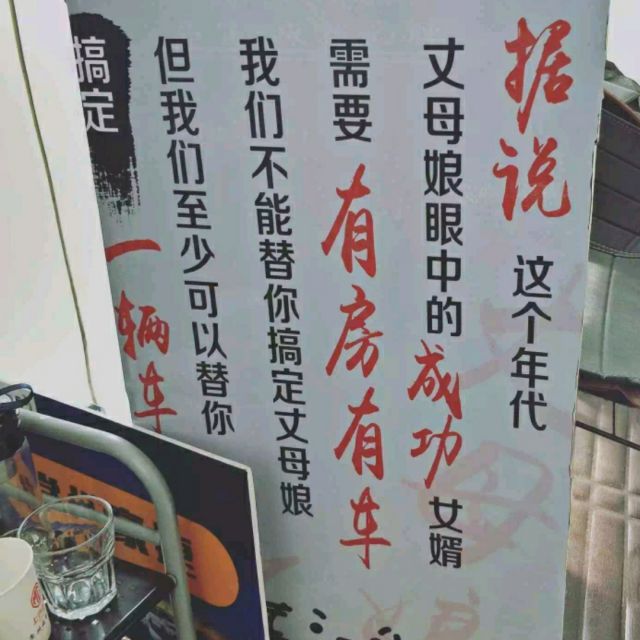 据说这个年代
丈母娘眼中的成功女婿
需要有房有车
我们不能替你搞定丈母娘
但我们至少可以替你
搞定一辆车